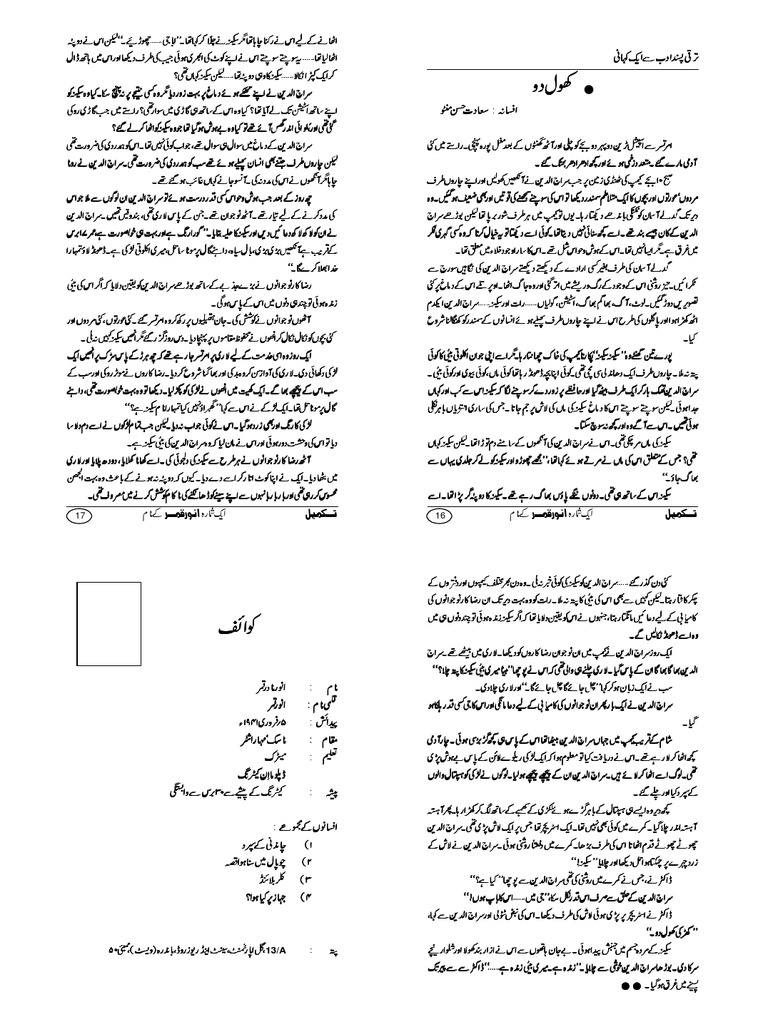 ترقی پسند ادب سے ایک کہانی
● کھول دو
افسانہ : سعادت حسن منٹو
امرتسر سے اسپیشل ٹرین دو پہر دو بجے کو چلی اور آٹھ گھنٹوں کے بعد مغل پورہ پہنچی۔ راستے میں کئی
آدمی مارے گئے۔ متعدد زخمی ہوئے اور کچھ ادھر ادھر بھٹک گئے۔
صبح ۱۰ بجے کیمپ کی ٹھنڈی زمین پر جب سراج الدین نے آنکھیں کھولیں اور اپنے چاروں طرف
مردوں عورتوں اور بچوں کا ایک متلاطم سمندر دیکھا تو اس کی سوچنے سمجھنے کی قوتیں اور بھی ضعیف ہوگئیں۔ وہ
دیر تک گدلے آسمان کو ٹکٹکی باندھے دیکھتا رہا۔ یوں تو کیمپ میں ہر طرف شور برپا تھا لیکن بوڑھے سراج
الدین کے کان جیسے بند تھے۔ اسے کچھ سنائی نہیں دیتا تھا۔ کوئی اسے دیکھتا تو یہ خیال کرتا کہ وہ کسی گہری فکر
میں غرق ہے۔ مگر ایسا نہیں تھا۔ اس کے ہوش و حواس شل تھے۔ اس کا سارا وجود خلاء میں معلق تھا۔
گدلے آسمان کی طرف بغیر کسی ارادے کے دیکھتے دیکھتے سراج الدین کی نگاہیں سورج سے
ٹکرائیں۔ تیز روشنی اس کے وجود کے رگ و ریشے میں اتر گئی اور وہ جاگ اٹھا۔ اوپر تلے اس کے دماغ پر کئی
تصویریں دوڑ گئیں۔ لوٹ، آگ، بھاگم بھاگ، اسٹیشن، گولیاں ..... رات اور سکینہ ..... سراج الدین ایکدم
اٹھ کھڑا ہوا اور پاگلوں کی طرح اس نے اپنے چاروں طرف پھیلے ہوئے انسانوں کے سمندر کو کھنگالنا شروع
کیا۔
پورے تین گھنٹے وہ ”سکینہ سکینہ“ پکارتا کیمپ کی خاک چھانتا رہا۔ مگر اسے اپنی جوان اکلوتی بیٹی کا کوئی
پتہ نہ ملا۔ چاروں طرف ایک دھاندلی سی مچی تھی۔ کوئی اپنا بچہ ڈھونڈ رہا تھا کوئی ماں۔ کوئی بیوی اور کوئی بیٹی۔
سراج الدین تھک ہار کر ایک طرف بیٹھ گیا اور حافظے پر زور دے کر سوچنے لگا کہ سکینہ اس سے کب اور کہاں
جدا ہوئی۔ لیکن سوچتے سوچتے اس کا دماغ سکینہ کی ماں کی لاش پر جم جاتا۔ جس کی ساری انتڑیاں باہر نکلی
ہوئی تھیں۔ اس سے آگے وہ اور کچھ نہ سوچ سکتا۔
سکینہ کی ماں مر چکی تھی۔ اس نے سراج الدین کی آنکھوں کے سامنے دم توڑا تھا۔ لیکن سکینہ کہاں
تھی؟ جس کے متعلق اس کی ماں نے مرتے ہوئے کہا تھا، ”مجھے چھوڑو اور سکینہ کو لے کر جلدی یہاں سے
بھاگ جاؤ۔“
سکینہ اس کے ساتھ ہی تھی۔ دونوں ننگے پاؤں بھاگ رہے تھے۔ سکینہ کا دوپٹہ گر پڑا تھا۔ اسے
تکمیل ایک شمارہ انور قمر کے نام 16
اٹھانے کے لیے اس نے رکنا چاہا تھا مگر سکینہ نے چلا کر کہا تھا۔ ”ابا جی ..... چھوڑیئے۔“ لیکن اس نے دوپٹہ
اٹھا لیا تھا ..... یہ سوچتے سوچتے اس نے اپنے کوٹ کی ابھری ہوئی جیب کی طرف دیکھا اور اس میں ہاتھ ڈال
کر ایک کپڑا نکالا ..... سکینہ کا وہی دوپٹہ تھا ..... لیکن سکینہ کہاں تھی؟
سراج الدین نے اپنے تھکے ہوئے دماغ پر بہت زور دیا مگر وہ کسی نتیجے پر نہ پہنچ سکا۔ کیا وہ سکینہ کو
اپنے ساتھ اسٹیشن تک لے آیا تھا؟ کیا وہ اس کے ساتھ ہی گاڑی میں سوار تھی؟ راستے میں جب گاڑی روکی
گئی تھی اور بلوائی اندر گھس آئے تھے تو کیا وہ بے ہوش ہو گیا تھا جو وہ سکینہ کو اٹھا کر لے گئے؟
سراج الدین کے دماغ میں سوال ہی سوال تھے، جواب کوئی نہیں تھا۔ اس کو ہمدردی کی ضرورت تھی
لیکن چاروں طرف جتنے بھی انسان پھیلے ہوئے تھے سب کو ہمدردی کی ضرورت تھی۔ سراج الدین نے رونا
چاہا مگر آنکھوں نے اس کی مدد نہ کی۔ آنسو جانے کہاں غائب ہو گئے تھے۔
چھ روز کے بعد جب ہوش و حواس کسی قدر درست ہوئے تو سراج الدین ان لوگوں سے ملا جو اس
کی مدد کرنے کے لیے تیار تھے۔ آٹھ نوجوان تھے۔ جن کے پاس لاری تھی، بندوقیں تھیں۔ سراج الدین
نے ان کو لاکھ لاکھ دعائیں دیں اور سکینہ کا حلیہ بتایا۔ ”گورا رنگ ہے اور بہت خوبصورت ہے ..... عمر سترہ برس
کے قریب ہے آنکھیں بڑی بڑی، بال سیاہ، داہنے گال پر موٹا سا تل، میری اکلوتی لڑکی ہے۔ ڈھونڈ لاؤ تمہارا
خدا بھلا کرے گا۔“
رضاکار نوجوانوں نے بڑے جذبے کے ساتھ بوڑھے سراج الدین کو یقین دلایا کہ اگر اس کی بیٹی
زندہ ہوئی تو چند ہی دنوں میں اس کے پاس ہوگی۔
آٹھوں نوجوانوں نے کوشش کی۔ جان ہتھیلیوں پر رکھ کر وہ امرتسر گئے۔ کئی عورتوں، کئی مردوں اور
کئی بچوں کو نکال نکال کر انہوں نے محفوظ مقاموں پر پہنچا دیا۔ دس روز گزر گئے مگر انہیں سکینہ کہیں نہ ملی۔
ایک روز وہ اسی خدمت کے لیے لاری پر امرتسر جا رہے تھے کہ چھ ہرٹہ کے پاس سڑک پر انھیں ایک
لڑکی دکھائی دی۔ لاری کی آواز سن کر وہ بدکی اور بھاگنا شروع کر دیا۔ رضاکاروں نے موٹر روکی اور سب کے
سب اس کے پیچھے بھاگے۔ ایک کھیت میں انھوں نے لڑکی کو پکڑ لیا۔ دیکھا تو وہ بہت خوبصورت تھی، داہنے
گال پر موٹا تل تھا۔ ایک لڑکے نے اس سے کہا ”گھبراؤ نہیں کیا تمہارا نام سکینہ ہے؟“
لڑکی کا رنگ اور بھی زرد ہو گیا۔ اس نے کوئی جواب نہ دیا لیکن جب تمام لڑکوں نے اسے دم دلاسا
دیا تو اس کی وحشت دور ہوئی اور اس نے مان لیا کہ وہ سراج الدین کی بیٹی سکینہ ہے۔
آٹھ رضاکار نوجوانوں نے ہر طرح سے سکینہ کی دلجوئی کی۔ اسے کھانا کھلایا، دودھ پلایا اور لاری
میں بٹھا دیا۔ ایک نے اپنا کوٹ اتار کر اسے دے دیا۔ کیوں کہ دوپٹہ نہ ہونے کے باعث وہ بہت الجھن
محسوس کر رہی تھی اور بار بار باہوں سے اپنے سینے کو ڈھانکنے کی ناکام کوشش کرنے میں مصروف تھی۔
تکمیل ایک شمارہ انور قمر کے نام 17
کئی دن گذر گئے ..... سراج الدین کو سکینہ کی کوئی خبر نہ ملی۔ وہ دن بھر مختلف کیمپوں اور دفتروں کے
چکر کاٹتا رہتا۔ لیکن کہیں سے بھی اس کی بیٹی کا پتہ نہ ملا۔ رات کو وہ بہت دیر تک ان رضاکار نوجوانوں کی
کامیابی کے لیے دعائیں مانگتا رہتا، جنہوں نے اس کو یقین دلایا تھا کہ اگر سکینہ زندہ ہوئی تو چند دنوں ہی میں
وہ اسے ڈھونڈ نکالیں گے۔
ایک روز سراج الدین نے کیمپ میں ان نوجوان رضاکاروں کو دیکھا۔ لاری میں بیٹھے تھے۔ سراج
الدین بھاگا بھاگا ان کے پاس گیا۔ لاری چلنے ہی والی تھی کہ اس نے پوچھا ”بیٹا میری بیٹی سکینہ کا پتہ چلا؟“
سب نے ایک زبان ہو کر کہا ”چل جائے گا چل جائے گا۔“ اور لاری چلا دی۔
سراج الدین نے ایک بار پھر ان نوجوانوں کی کامیابی کے لیے دعا مانگی اور اس کا جی کسی قدر ہلکا ہو
گیا۔
شام کے قریب کیمپ میں جہاں سراج الدین بیٹھا تھا اس کے پاس ہی کچھ گڑبڑ سی ہوئی۔ چار آدمی
کچھ اٹھا کر لا رہے تھے۔ اس نے دریافت کیا تو معلوم ہوا کہ ایک لڑکی ریلوے لائن کے پاس بے ہوش پڑی
تھی۔ لوگ اسے اٹھا کر لائے ہیں۔ سراج الدین ان کے پیچھے پیچھے ہو لیا۔ لوگوں نے لڑکی کو ہسپتال والوں
کے سپرد کیا اور چلے گئے۔
کچھ دیر وہ ایسے ہی ہسپتال کے باہر گڑے ہوئے لکڑی کے کھمبے کے ساتھ لگ کر کھڑا رہا۔ پھر آہستہ
آہستہ اندر چلا گیا۔ کمرے میں کوئی بھی نہیں تھا۔ ایک اسٹریچر تھا جس پر ایک لاش پڑی تھی۔ سراج الدین
چھوٹے چھوٹے قدم اٹھاتا اس کی طرف بڑھا۔ کمرے میں دفعتاً روشنی ہوئی۔ سراج الدین نے لاش کے
زرد چہرے پر چمکتا ہوا تل دیکھا اور چلایا ”سکینہ!“
ڈاکٹر نے، جس نے کمرے میں روشنی کی تھی سراج الدین سے پوچھا ”کیا ہے؟“
سراج الدین کے حلق سے صرف اس قدر نکل سکا، ”جی میں ..... اس کا باپ ہوں!“
ڈاکٹر نے اسٹریچر پر پڑی ہوئی لاش کی طرف دیکھا۔ اس کی نبض ٹٹولی اور سراج الدین سے کہا،
”کھڑکی کھول دو۔“
سکینہ کے مردہ جسم میں جنبش پیدا ہوئی۔ بے جان ہاتھوں سے اس نے ازار بند کھولا اور شلوار نیچے
سرکا دی۔ بوڑھا سراج الدین خوشی سے چلایا۔ ”زندہ ہے۔ میری بیٹی زندہ ہے .....“ ڈاکٹر سر سے پیر تک
پسینے میں غرق ہو گیا۔ ●●
کوائف
نام : انور نادر قمر
قلمی نام : انور قمر
پیدائش : ۵؍ فروری ۱۹۴۱ء
مقام : ناسک مہاراشٹر
تعلیم : میٹرک
ڈپلوما اِن کیٹرنگ
پیشہ : کیٹرنگ کے پیشے سے ۳۰ برس سے وابستگی
افسانوں کے مجموعے :
۱) چاندنی کے سپرد
۲) چوپال میں سنا ہوا قصہ
۳) کلر بلائنڈ
۴) جہاز پر کیا ہوا؟
پتہ : 13/A جگل اپارٹمنٹ، سینٹ اینڈریوز روڈ، باندرہ (ویسٹ)، ممبئی ۵۰